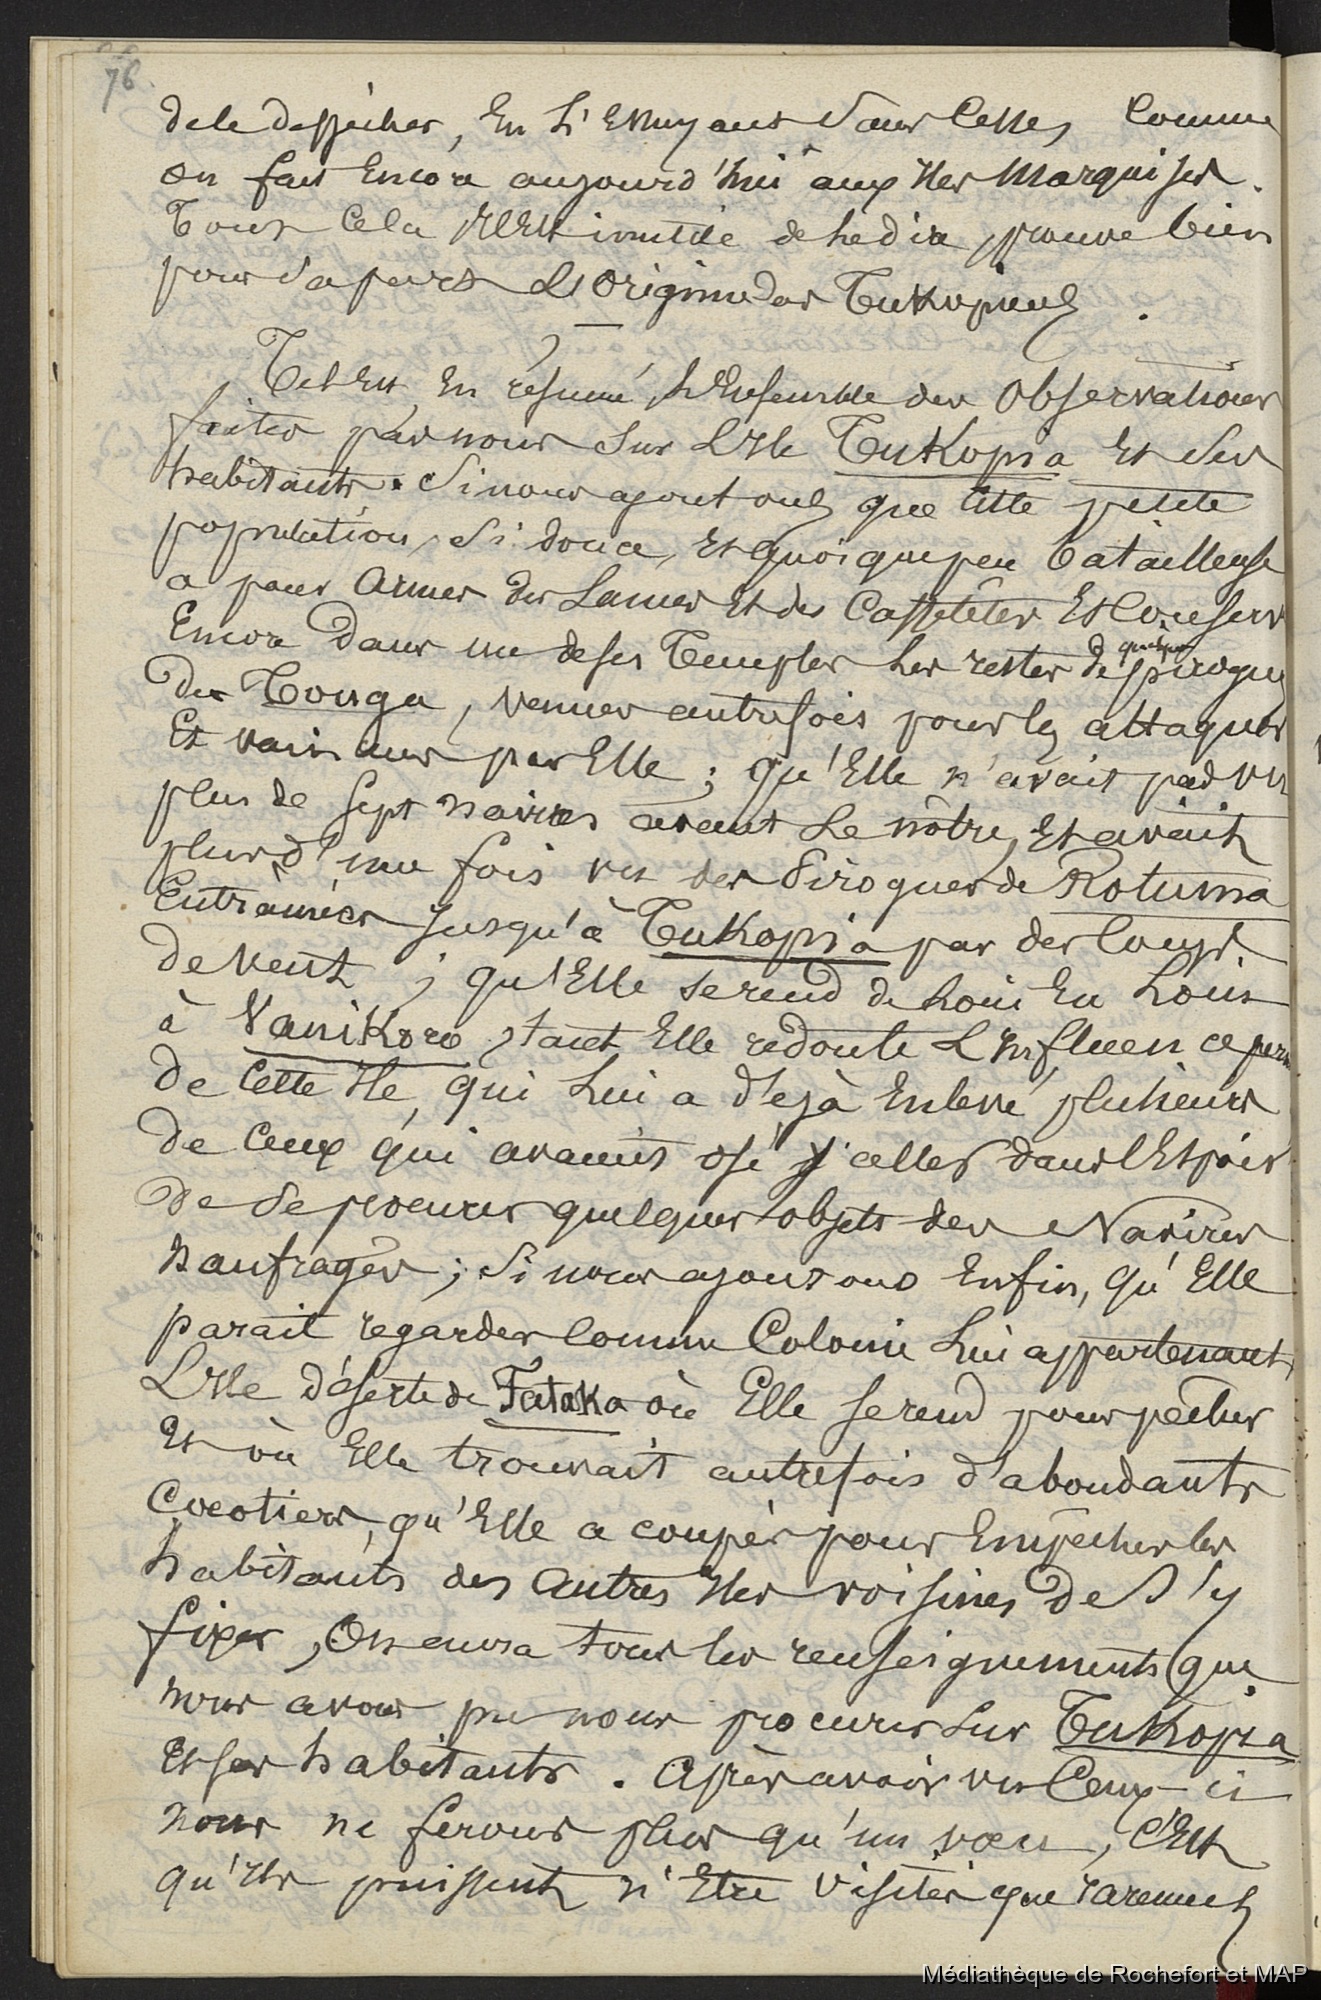 76.
de le dessécher, en l'essuyant sans cesse, comme
on fait encore aujourd'hui aux Iles Marquises.
Tout cela, il est inutile de le dire, prouve bien
pour sa part l'origine des Tukopiens.
Tel est, en résumé, l'ensemble des observations
faites par nous sur l'Ile Tukopia et ses
habitants. Si nous ajoutons que cette petite
population, si douce, et quoique peu batailleuse
a pour armes des Lances et des Cassetêtes et conserve
encore dans un de ses Temples les restes de quelques pirogues
de Tonga, venues autrefois pour les attaquer
et vaincues par Elle ; qu'Elle n'avait pas vu
plus de sept navires avant le nôtre, et avait
plus d'une fois vu des Pirogues de Rotuma
entraînées jusqu'à Tukopia par des coups
de vent ; qu'Elle se rend de loin en loin
à Vanikoro, tant Elle redoute l'influence
de cette Ile, qui lui a déjà enlevé plusieurs
de ceux qui avaient osé y aller dans l'espoir
de se procurer quelques objets des Navires
naufragés ; si nous ajoutons enfin, qu'Elle
parait regarder comme Colonie lui appartenant,
l'Ile déserte de Fataka où Elle se rend pour pêcher
et où Elle trouvait autrefois d'abondants
Cocotiers, qu'Elle a coupés pour empêcher les
habitants des autres Iles voisines de s'y
fixer, On aura tous les renseignements que
nous avons pu nous procurer sur Tukopia
et ses habitants. Après avoir vu Ceux-ci
nous ne ferons plus qu'un vœu, c'est
qu'Ils puissent n'être visités que rarement
Médiathèque de Rochefort et MAP